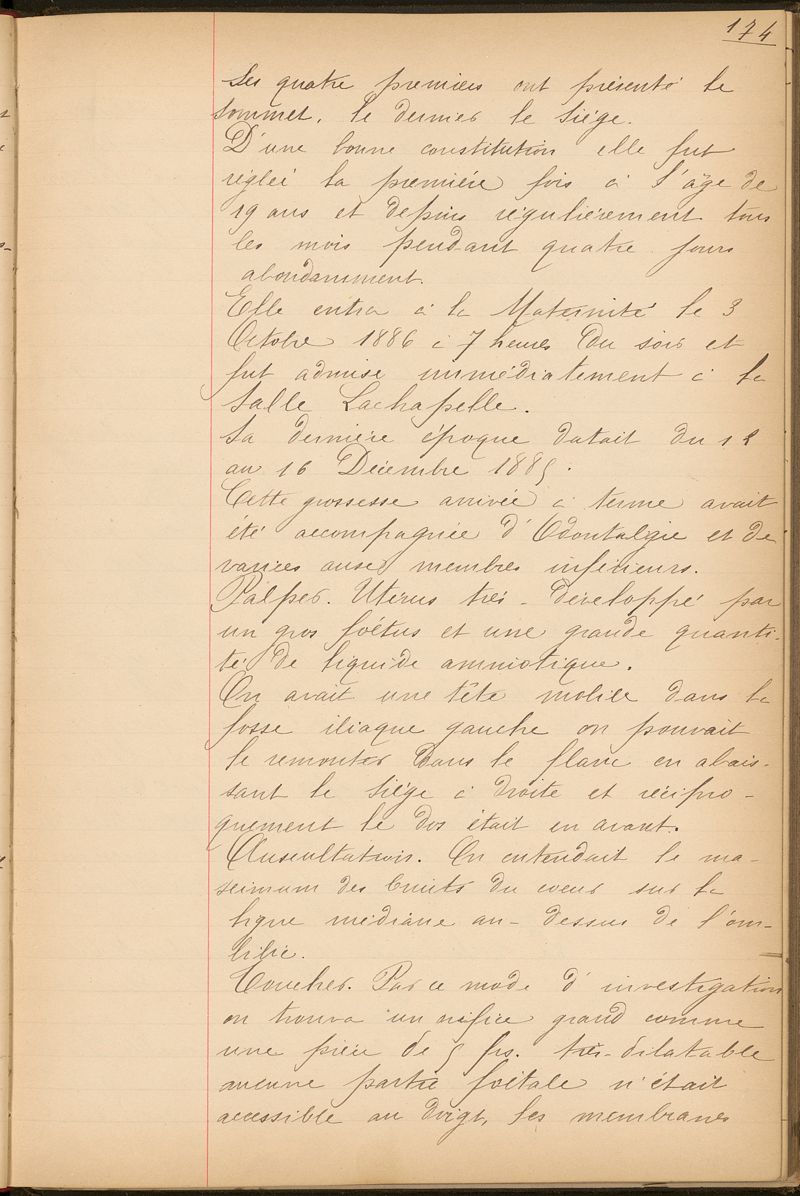 174
Les quatre premiers ont présenté le
sommet, le dernier le siège.
D'une bonne constitution elle fut
réglée la première fois à l'âge de
19 ans et depuis régulièrement tous
les mois pendant quatre jours
abondamment.
Elle entra à la Maternité le 3
Octobre 1886 à 7 heures du soir et
fut admise immédiatement à la
salle Lachapelle.
Sa dernière époque datait du 12
au 16 Décembre 1885.
Cette grossesse arrivée à terme avait
été accompagnée d'Odontalgie et de
varices aux membres inférieurs.
Palper. Utérus très-développé par
un gros foétus et une grande quanti-
té de liquide amniotique.
On avait une tête mobile dans la
fosse iliaque gauche on pouvait
le remonter dans le flanc en abais-
sant le siège à droite et récipro-
quement le dos était en avant.
Auscultation. On entendait le ma-
ximum des bruits du coeur sur la
ligne médiane au-dessus de l'om-
bilic.
Toucher. Par ce mode d'investigation
on trouva un orifice grand comme
une pièce de 5 frs. très-dilatable
aucune partie foétale n'était
accessible au doigt, les membranes